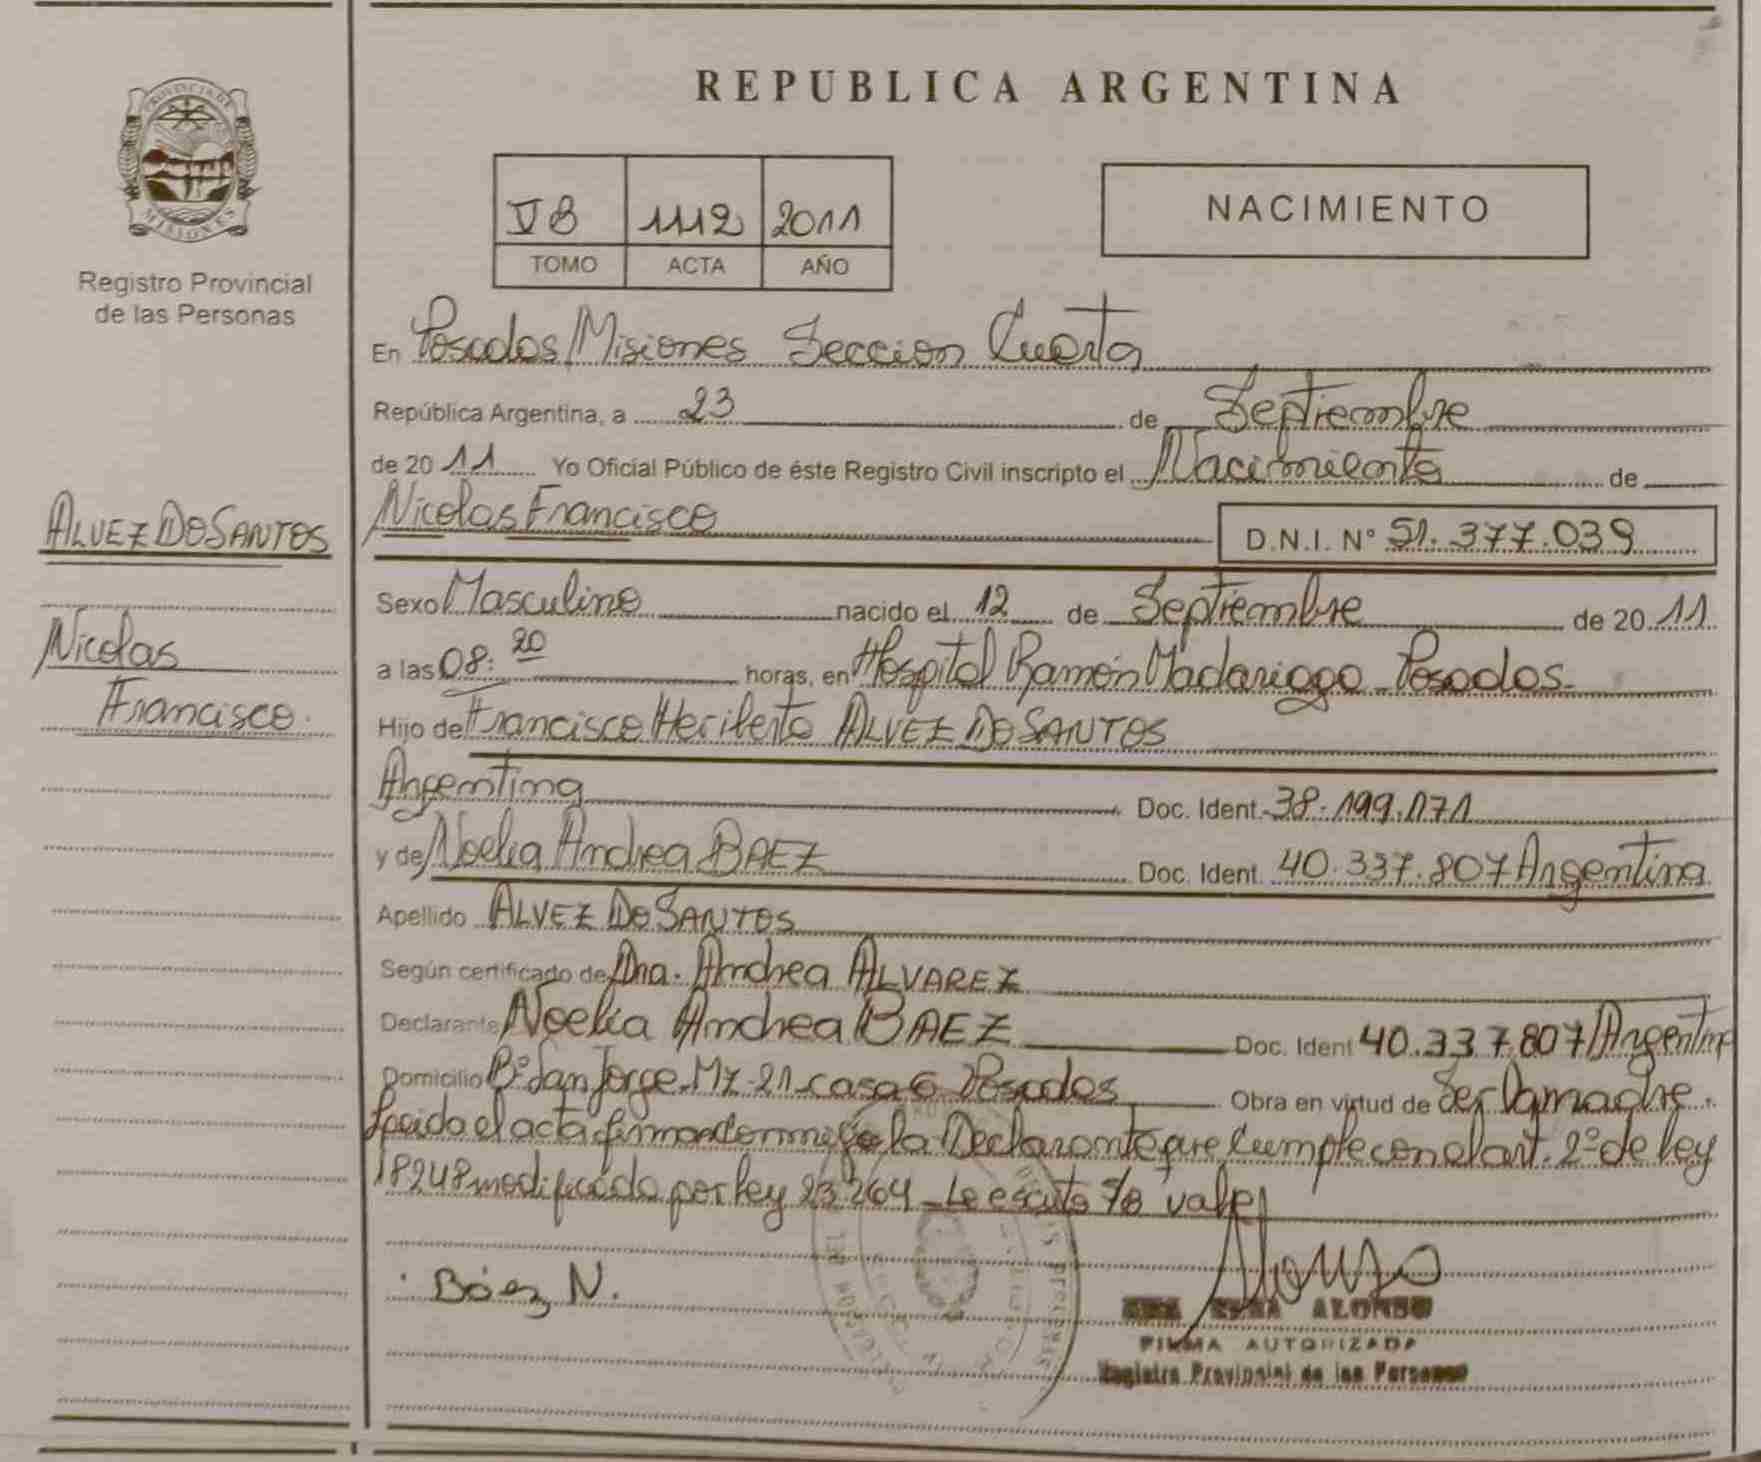 PROVINCIA DE
MISIONES
Registro Provincial
de las Personas
ALVEZ DO SANTOS
Nicolas
Francisco.
REPUBLICA ARGENTINA
VB 1112 2011
TOMO ACTA AÑO
NACIMIENTO
En Posadas Misiones Seccion Cuarta
República Argentina, a 23 de Septiembre
de 20 11 Yo Oficial Público de éste Registro Civil inscripto el Nacimiento de
Nicolas Francisco
D.N.I. N° 51.377.039
Sexo Masculino nacido el 12 de Septiembre de 20 11
a las 08:20 horas, en Hospital Ramón Madariaga Posadas.
Hijo de Francisco Heriberto ALVEZ DO SANTOS
Argentina Doc. Ident. 38.199.171
y de Noelia Andrea BAEZ Doc. Ident. 40.337.807 Argentina
Apellido ALVEZ DO SANTOS
Según certificado de Dra. Andrea ALVAREZ
Declarante Noelia Andrea BAEZ Doc. Ident 40.337.807 Argentina
Domicilio B° San Jorge Mz-21-casa 6 Posadas Obra en virtud de Ser la madre.
Leida el acta firman conmigo la Declarante que Cumple con el art. 2° de ley
18248 modificado por ley 23.264 vale
Báez N.
ALONSO
FIRMA AUTORIZADA
Registro Provincial de las Personas